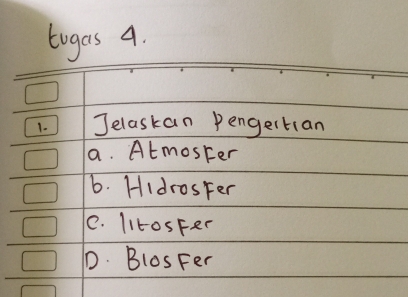 tugas 4.
1. Jelaskan pengertian
a. Atmosfer
b. Hidrosfer
c. litosfer
D. Biosfer